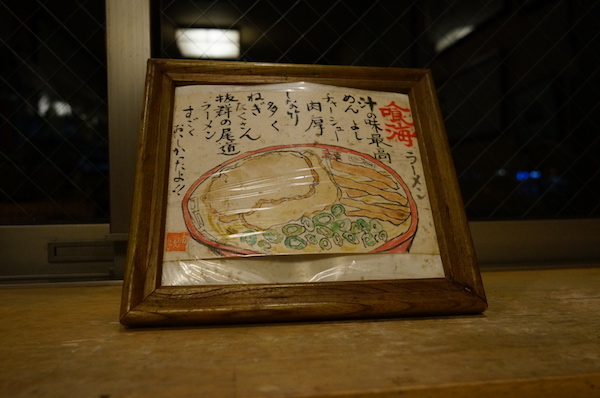 喰海ラーメン
汁の味最高
めん よし
チャーシュー
肉厚
しなちく
多く
ねぎ
たくさん
抜群の尾道
ラーメン
すごく
おいしかったよ!!